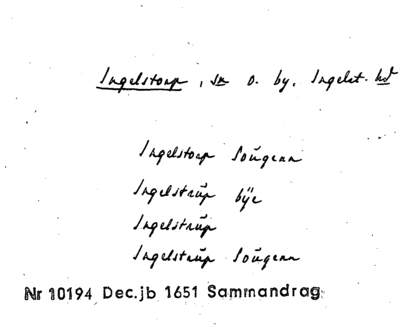 Ingelstorp, sn o. by, Ingelst. hd
Ingelstorp Soŭgenn
Ingelstrŭp bÿe
Ingelstrŭp
Ingelstrŭp Soŭgenn
Nr 10194 Dec.jb 1651 Sammandrag